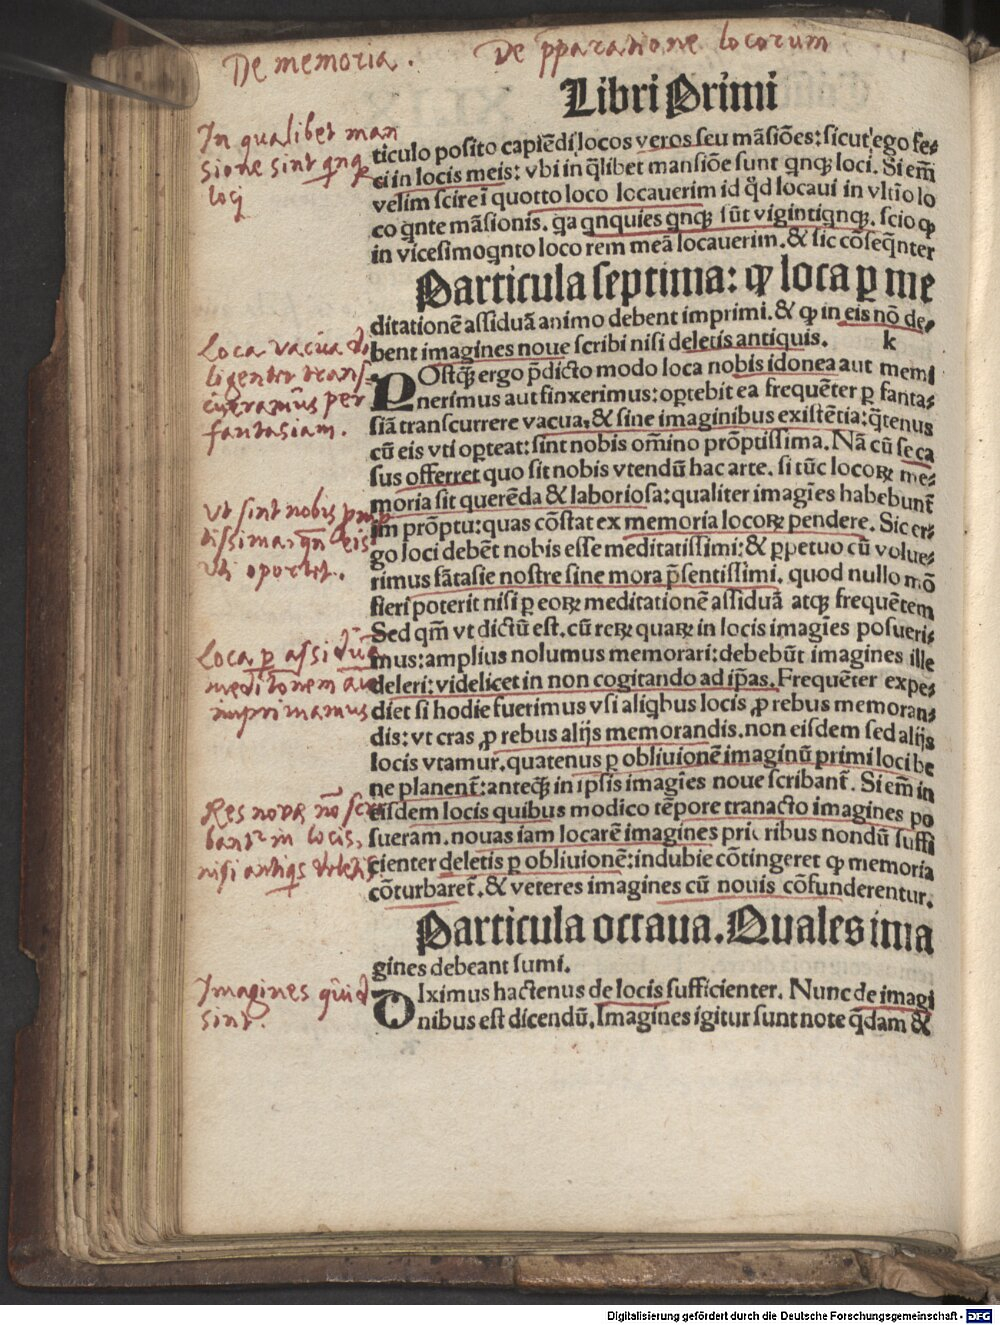 De memoria. De pparatione locorum
Libri Primi
In qualibet man
sione sint qnqȝ
locj
ticulo posito capiēdi locos veros seu māsiōes: sicut ego fe⸗
ci in locis meis: vbi in q̄libet mansiōe sunt qnqȝ loci. Si em̄
velim scire ī quotto loco locauerim id q̇d locaui in vltīo lo
co qnte māsionis. qa qnquies qnqȝ sūt vigintiqnqȝ. scio ꝙ
in vicesimoqnto loco rem meā locauerim. & sic cōseqnter
Particula septima: ꝙ loca ꝑ me
ditationē assiduā animo debent imprimi. & ꝙ in eis nō de⸗
bent imagines noue scribi nisi deletis antiquis. k
Loca vacua di
ligenter trans⸗
curramus per
fantasiam.
POstqȝ ergo p̄dicto modo loca nobis idonea aut memi
nerimus aut finxerimus: oꝑtebit ea frequēter ꝑ fanta⸗
siā transcurrere vacua, & sine imaginibus existētia: q̄tenus
cū eis vti oꝑteat: sint nobis om̄ino prōptissima. Nā cū se ca
sus offerret quo sit nobis vtendū hac arte. si tūc locoꝝ me⸗
moria sit querēda & laboriosa: qualiter imagīes habebunt̄
im prōptu: quas cōstat ex memoria locoꝝ pendere. Sic er⸗
go loci debēt nobis esse meditatissimi: & ꝑpetuo cū volue⸗
rimus fātasie nostre sine mora p̄sentissimi. quod nullo mō
fieri poterit nisi ꝑ eoꝝ meditationē assiduā atqȝ frequētem
Vt sint nobis promp
tissima, qn̄ eis
vti oportet.
Sed qm̄ vt dictū est. cū reꝝ quaꝝ in locis imagīes posueri⸗
mus: amplius nolumus memorari: debebūt imagines ille
deleri: videlicet in non cogitando ad ip̄as. Frequēter expe⸗
diet si hodie fuerimus vsi aliqbus locis ꝓ rebus memoran⸗
dis: vt cras ꝓ rebus alijs memorandis. non eisdem sed alijs
locis vtamur. quatenus ꝑ obliuionē imaginū primi loci be
ne planent̄: anteqȝ in ipsis imagīes noue scribant̄. Si em̄ in
Loca ꝑ assiduā
meditōnem aīo
imprimamus
eisdem locis quibus modico tēpore tranacto imagines po
sueram. nouas iam locarē imagines pri ribus nondū suffi
cienter deletis ꝑ obliuionē: indubie cōtingeret ꝙ memoria
cōturbaret̄. & veteres imagines cū nouis cōfunderentur.
Res novæ nō scri
bant̄ in locis,
nisi antiqs deletis
Particula octaua. Quales ima
gines debeant sumi.
Imagines quid
sint.
DIximus hactenus de locis sufficienter. Nunc de imagi
nibus est dicendū. Imagines igitur sunt note q̄dam &
Digitalisierung gefördert durch die Deutsche Forschungsgemeinschaft - DFG